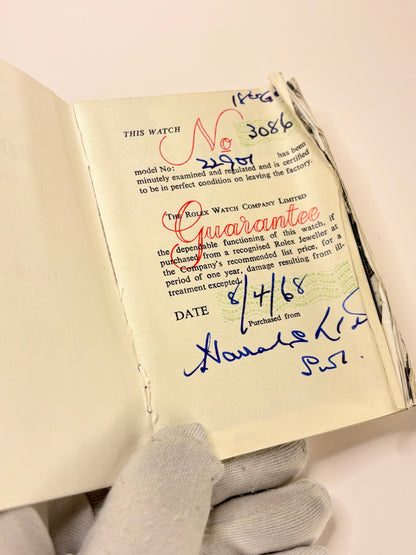 18ct Gold
THIS WATCH No 3086
model No: 22901 has been
minutely examined and regulated and is certified
to be in perfect condition on leaving the factory.
THE ROLEX WATCH COMPANY LIMITED
Guarantee
the dependable functioning of this watch, if
purchased from a recognised Rolex Jeweller at
the Company's recommended list price, for a
period of one year, damage resulting from ill-
treatment excepted.
DATE 8/4/68
Purchased from